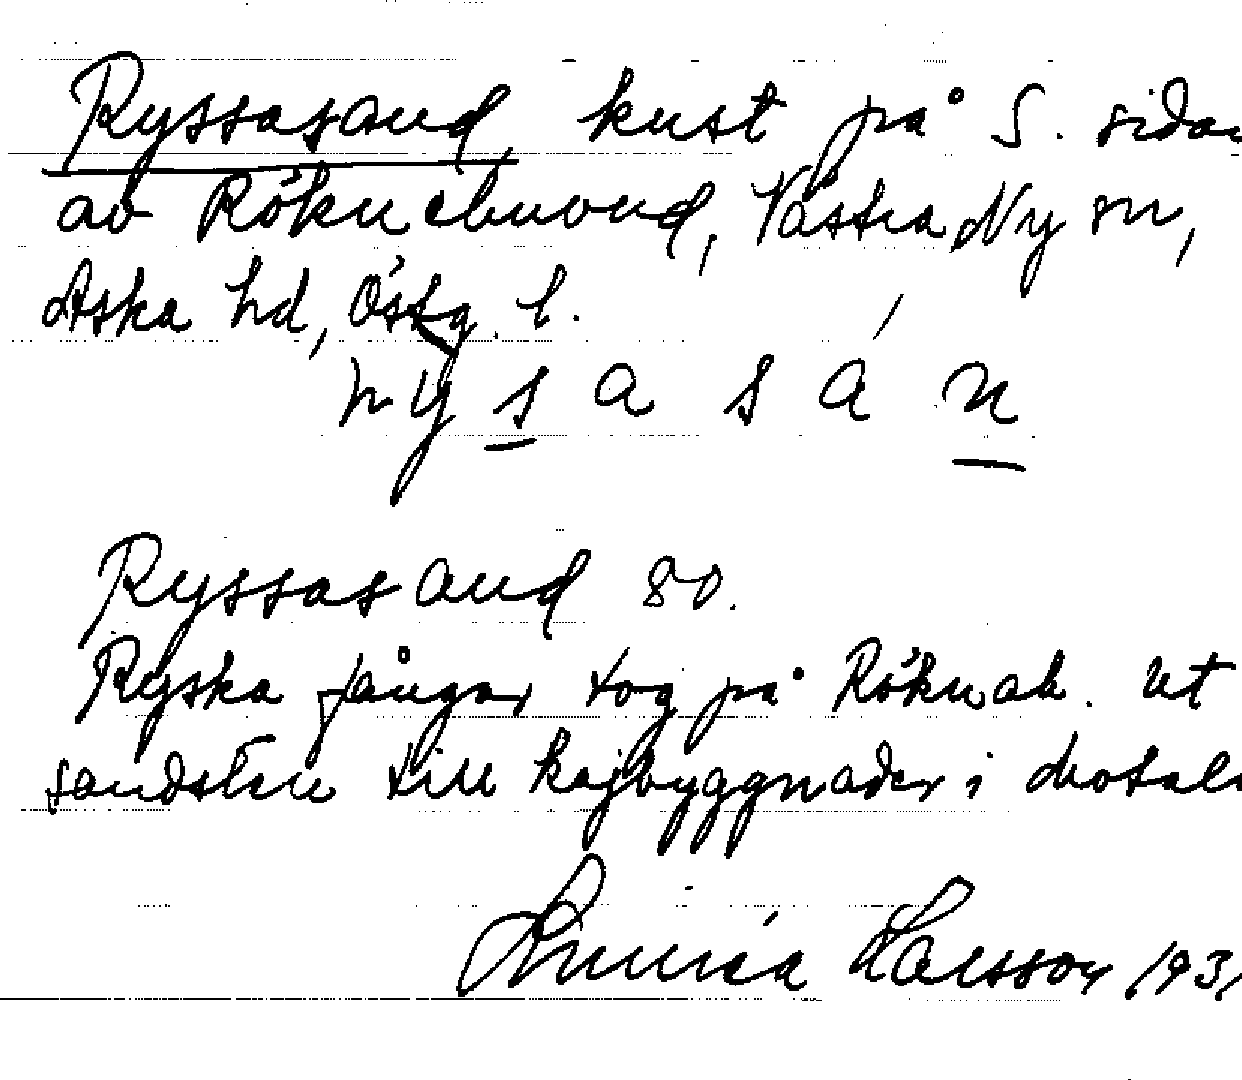 Ryssasand, kust på S. sidan
av Röknebuvud, Västra Ny sn,
Aska hd, Östg. l.
rysasán
Ryssasand 80.
Ryska fångar tog på Röknab. ut
sandsten till kajbyggnader i Motala
Linnéa Larsson 193